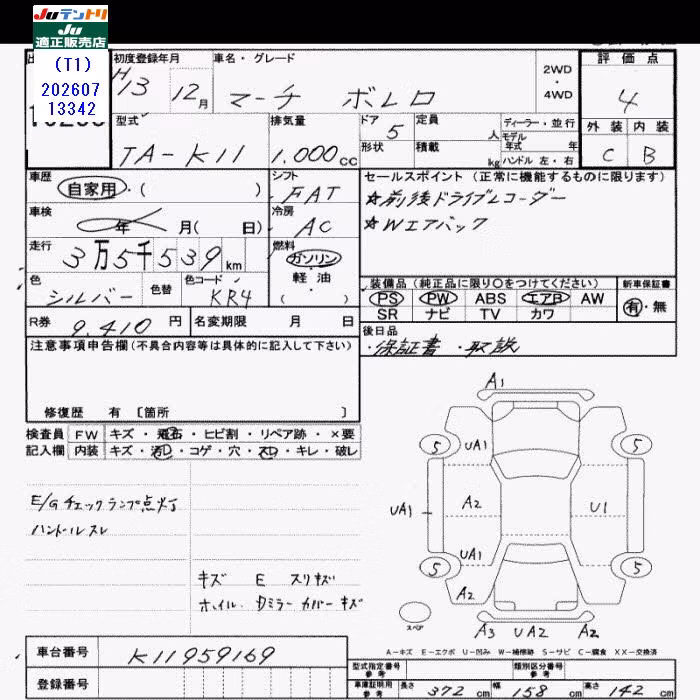 JUテントリ
JU
適正販売店
(T1)
202607
13342
初度登録年月 車名・グレード 2WD・4WD 評価点
H13 12月 マーチ ボレロ 4
型式 排気量 ドア 定員 人 ディーラー・並行 外装 内装
TA-K11 1.000cc 5 モデル年式 年 C B
形状 積載 kg ハンドル 左・右
車歴 自家用・( ) シフト FAT
セールスポイント (正常に機能するものに限ります)
☆前後ドライブレコーダー
☆Wエアバック
車検 年 月( 日) 冷房 AC
走行 3万5千539km 燃料 ガソリン・軽油 ( )
色 シルバー 色替 色コード KR4
装備品 (純正品に限り○をつけてください) 新車保証書
PS PW ABS エアB AW 有・無
SR ナビ TV カワ
R券 9.410円 名変期限 月 日
後日品
・保証書 ・取説
注意事項申告欄(不具合内容等は具体的に記入して下さい)
修復歴 有 〔箇所 〕
検査員 FW キズ・飛石・ヒビ割・リペア跡・×要
記入欄 内装 キズ・汚レ・コゲ・穴・スレ・キレ・破レ
E/Gチェックランプ点灯
ハンドルスレ
キズ E スリキズ
ホイル、Dミラーカバーキズ
A1
5 UA1 5
UA1 A2 U1
UA1
5 5
A2
スペア
A3 UA2 A2
A-キズ E-エクボ U-凹み W-補修跡 S-サビ C-腐食 XX-交換済
車台番号 K11959169
登録番号
型式指定番号 参考 類別区分番号 参考
車庫証明用 参考 長さ 372cm 幅 158cm 高さ 142cm